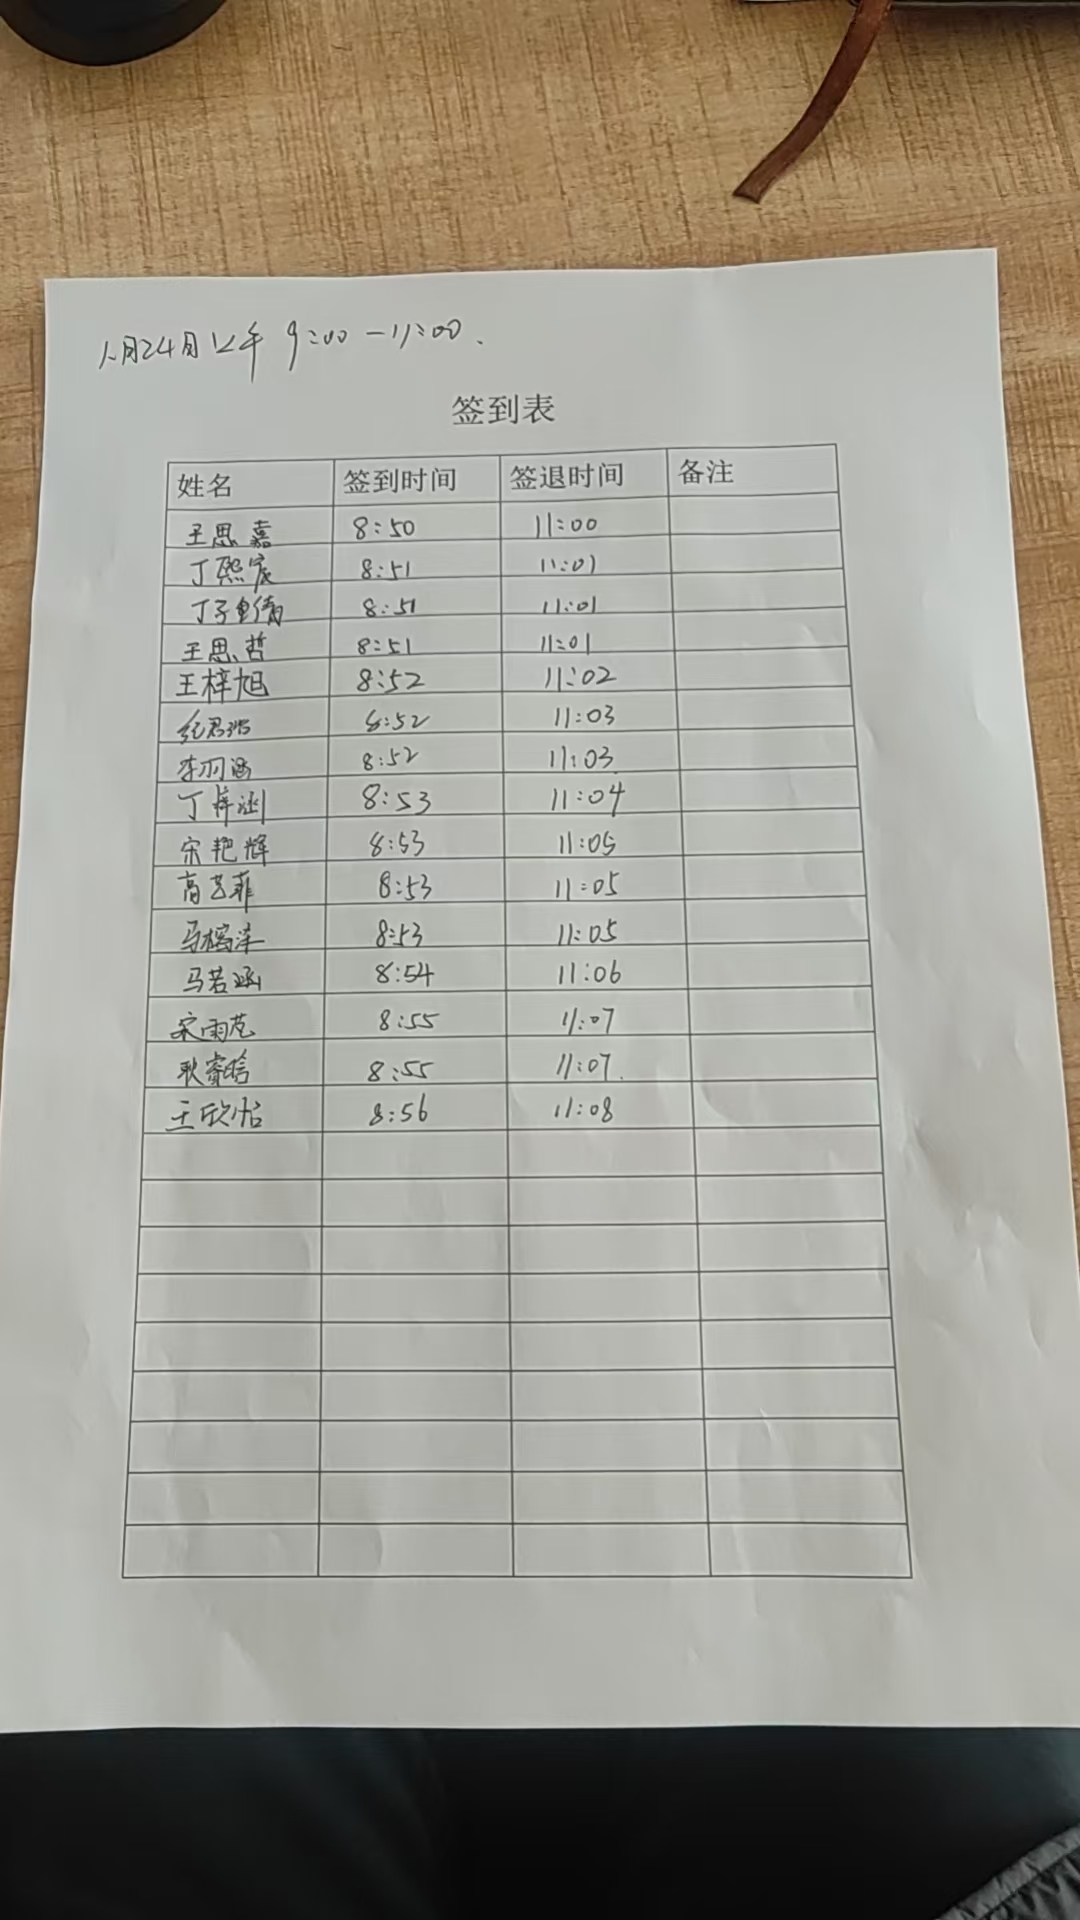 1月24日上午 9:00-11:00.
签到表
姓名 签到时间 签退时间 备注
王思嘉 8:50 11:00
丁熙宸 8:51 11:01
丁子 8:51 11:01
王思哲 8:51 11:01
王梓旭 8:52 11:02
纪君浩 8:52 11:03
李羽涵 8:52 11:03
丁梓涵 8:53 11:04
宋艳辉 8:53 11:05
高艺菲 8:53 11:05
马 泽 8:53 11:05
马若涵 8:54 11:06
宋雨芯 8:55 11:07
耿睿晗 8:55 11:07.
王欣怡 8:56 11:08